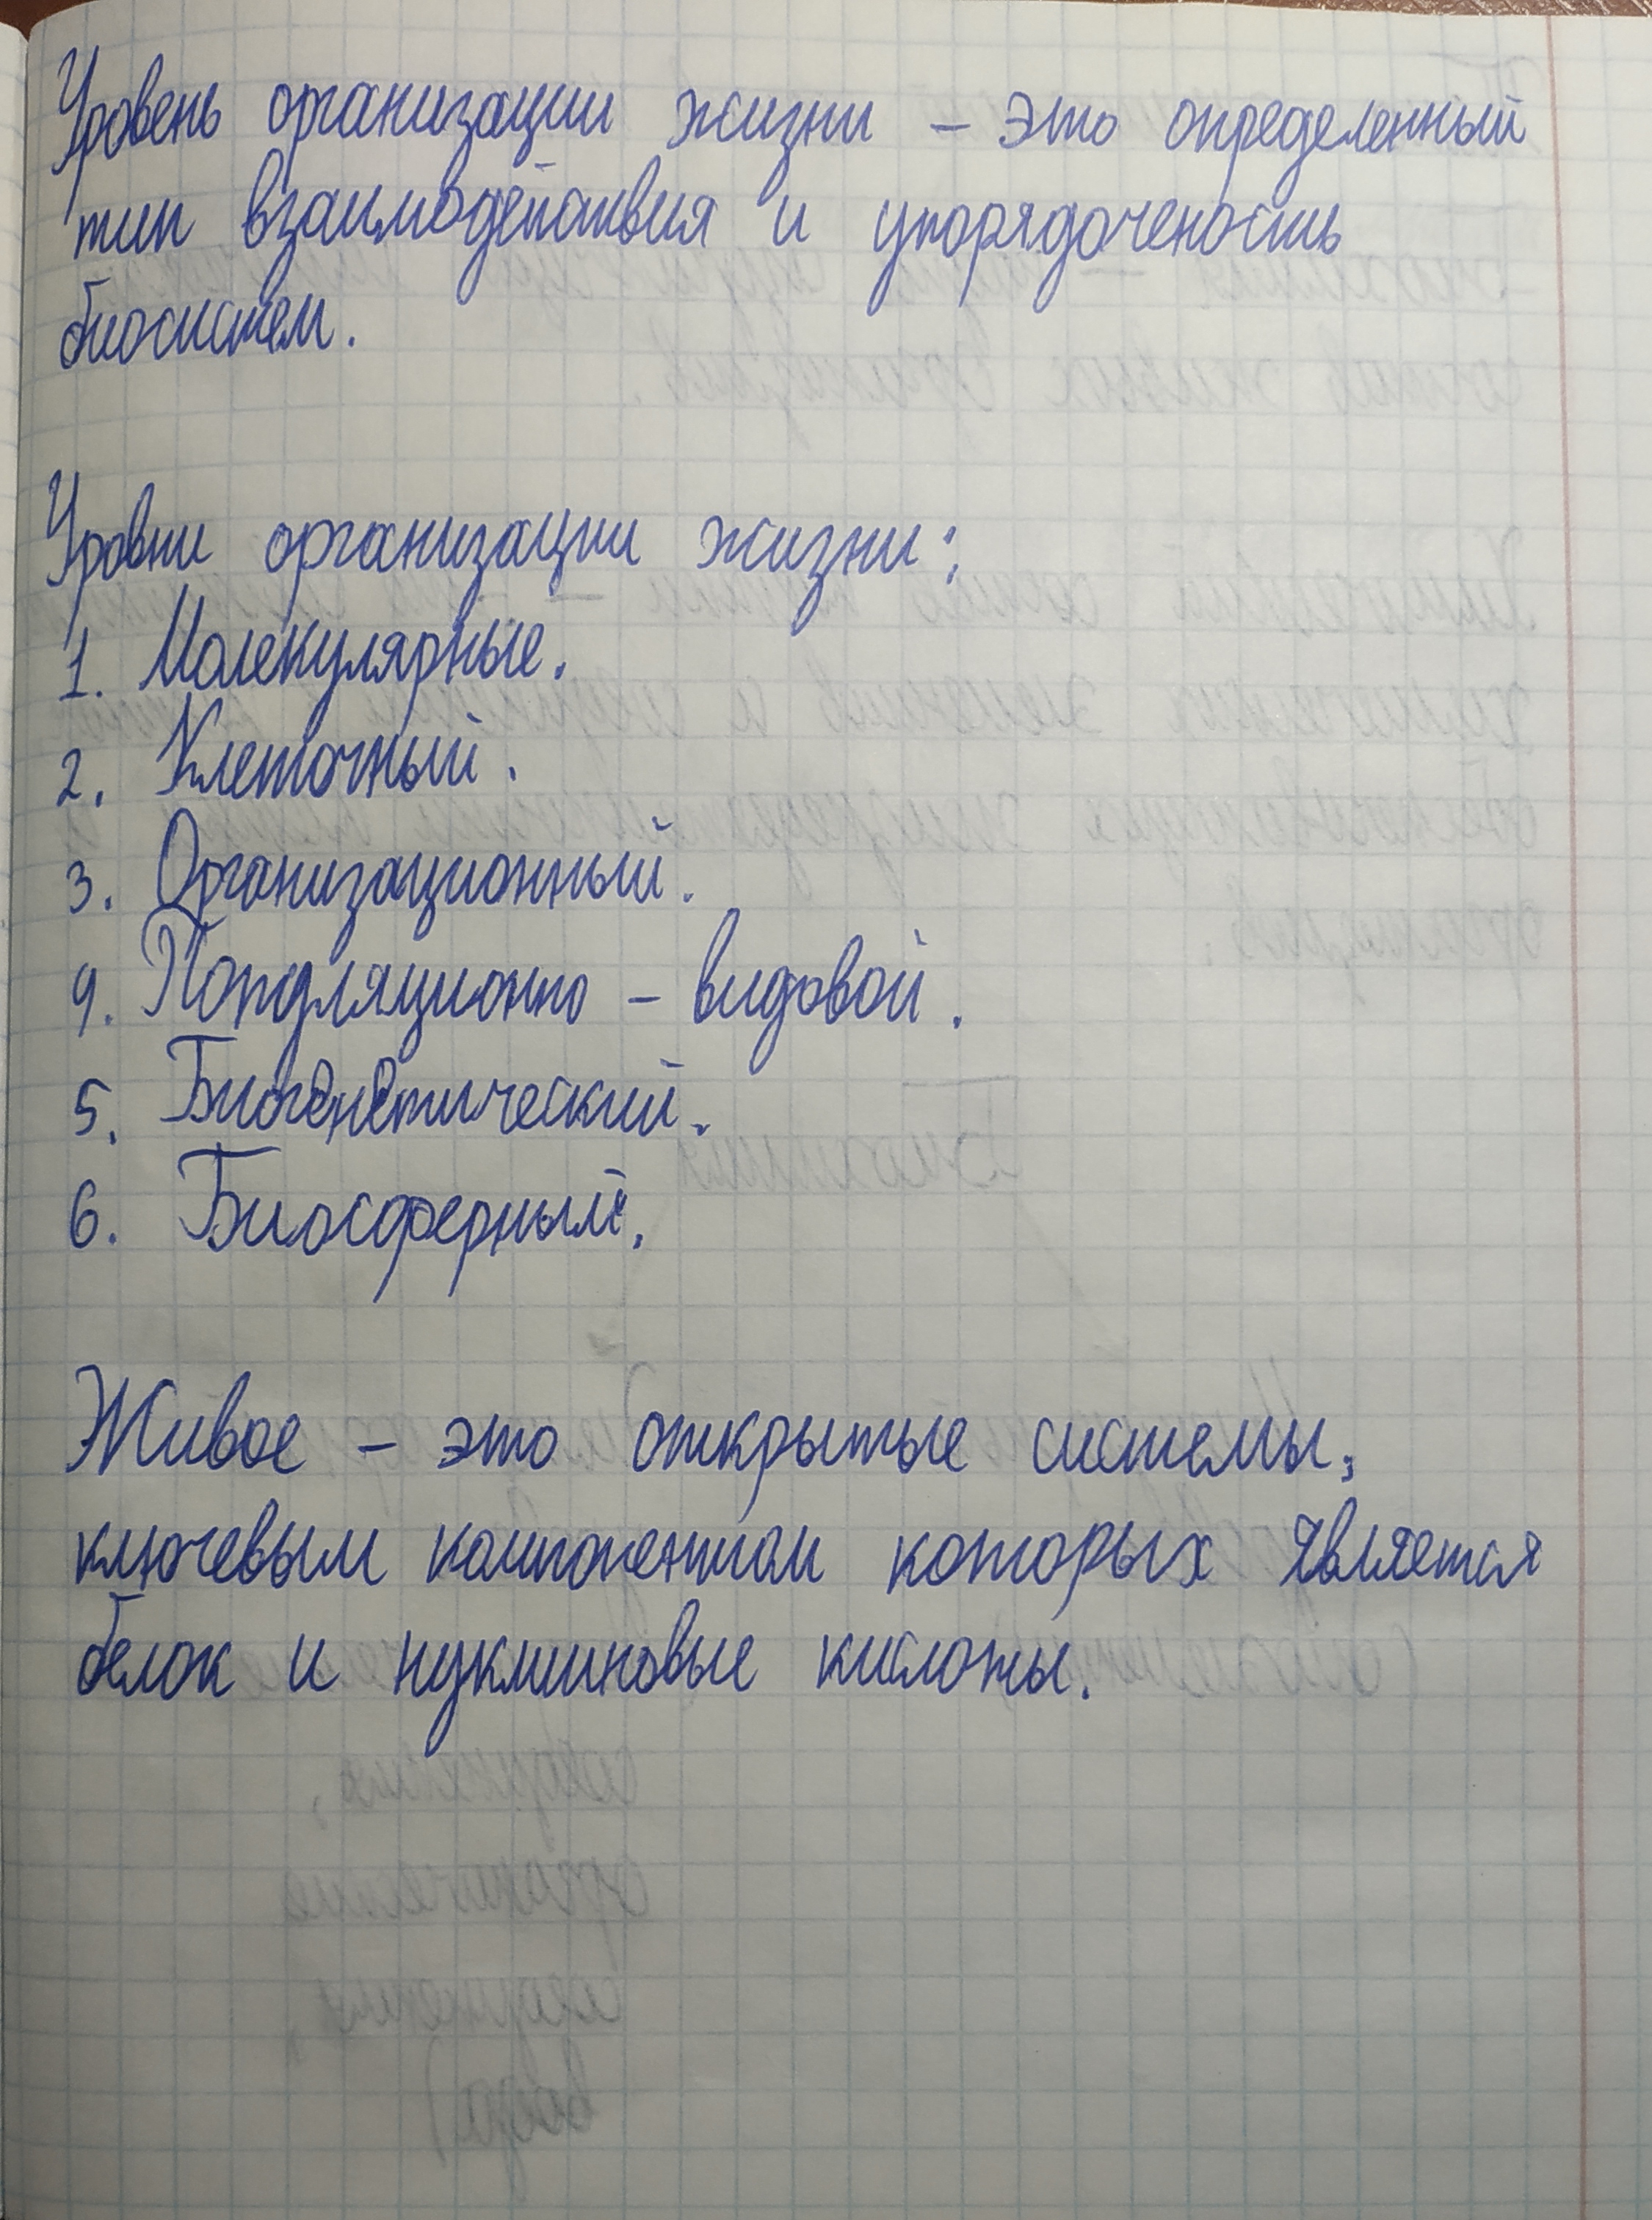 Уровень организации жизни – это определенный
тип взаимодействия и упорядоченость
биосистем.
Уровни организации жизни:
1. Молекулярные.
2. Клеточный.
3. Организационный.
4. Популяционно – видовой.
5. Биогенетический.
6. Биосферный.
Живое – это открытые системы,
ключевым компонентом которых является
белок и нуклиновые кислоты.